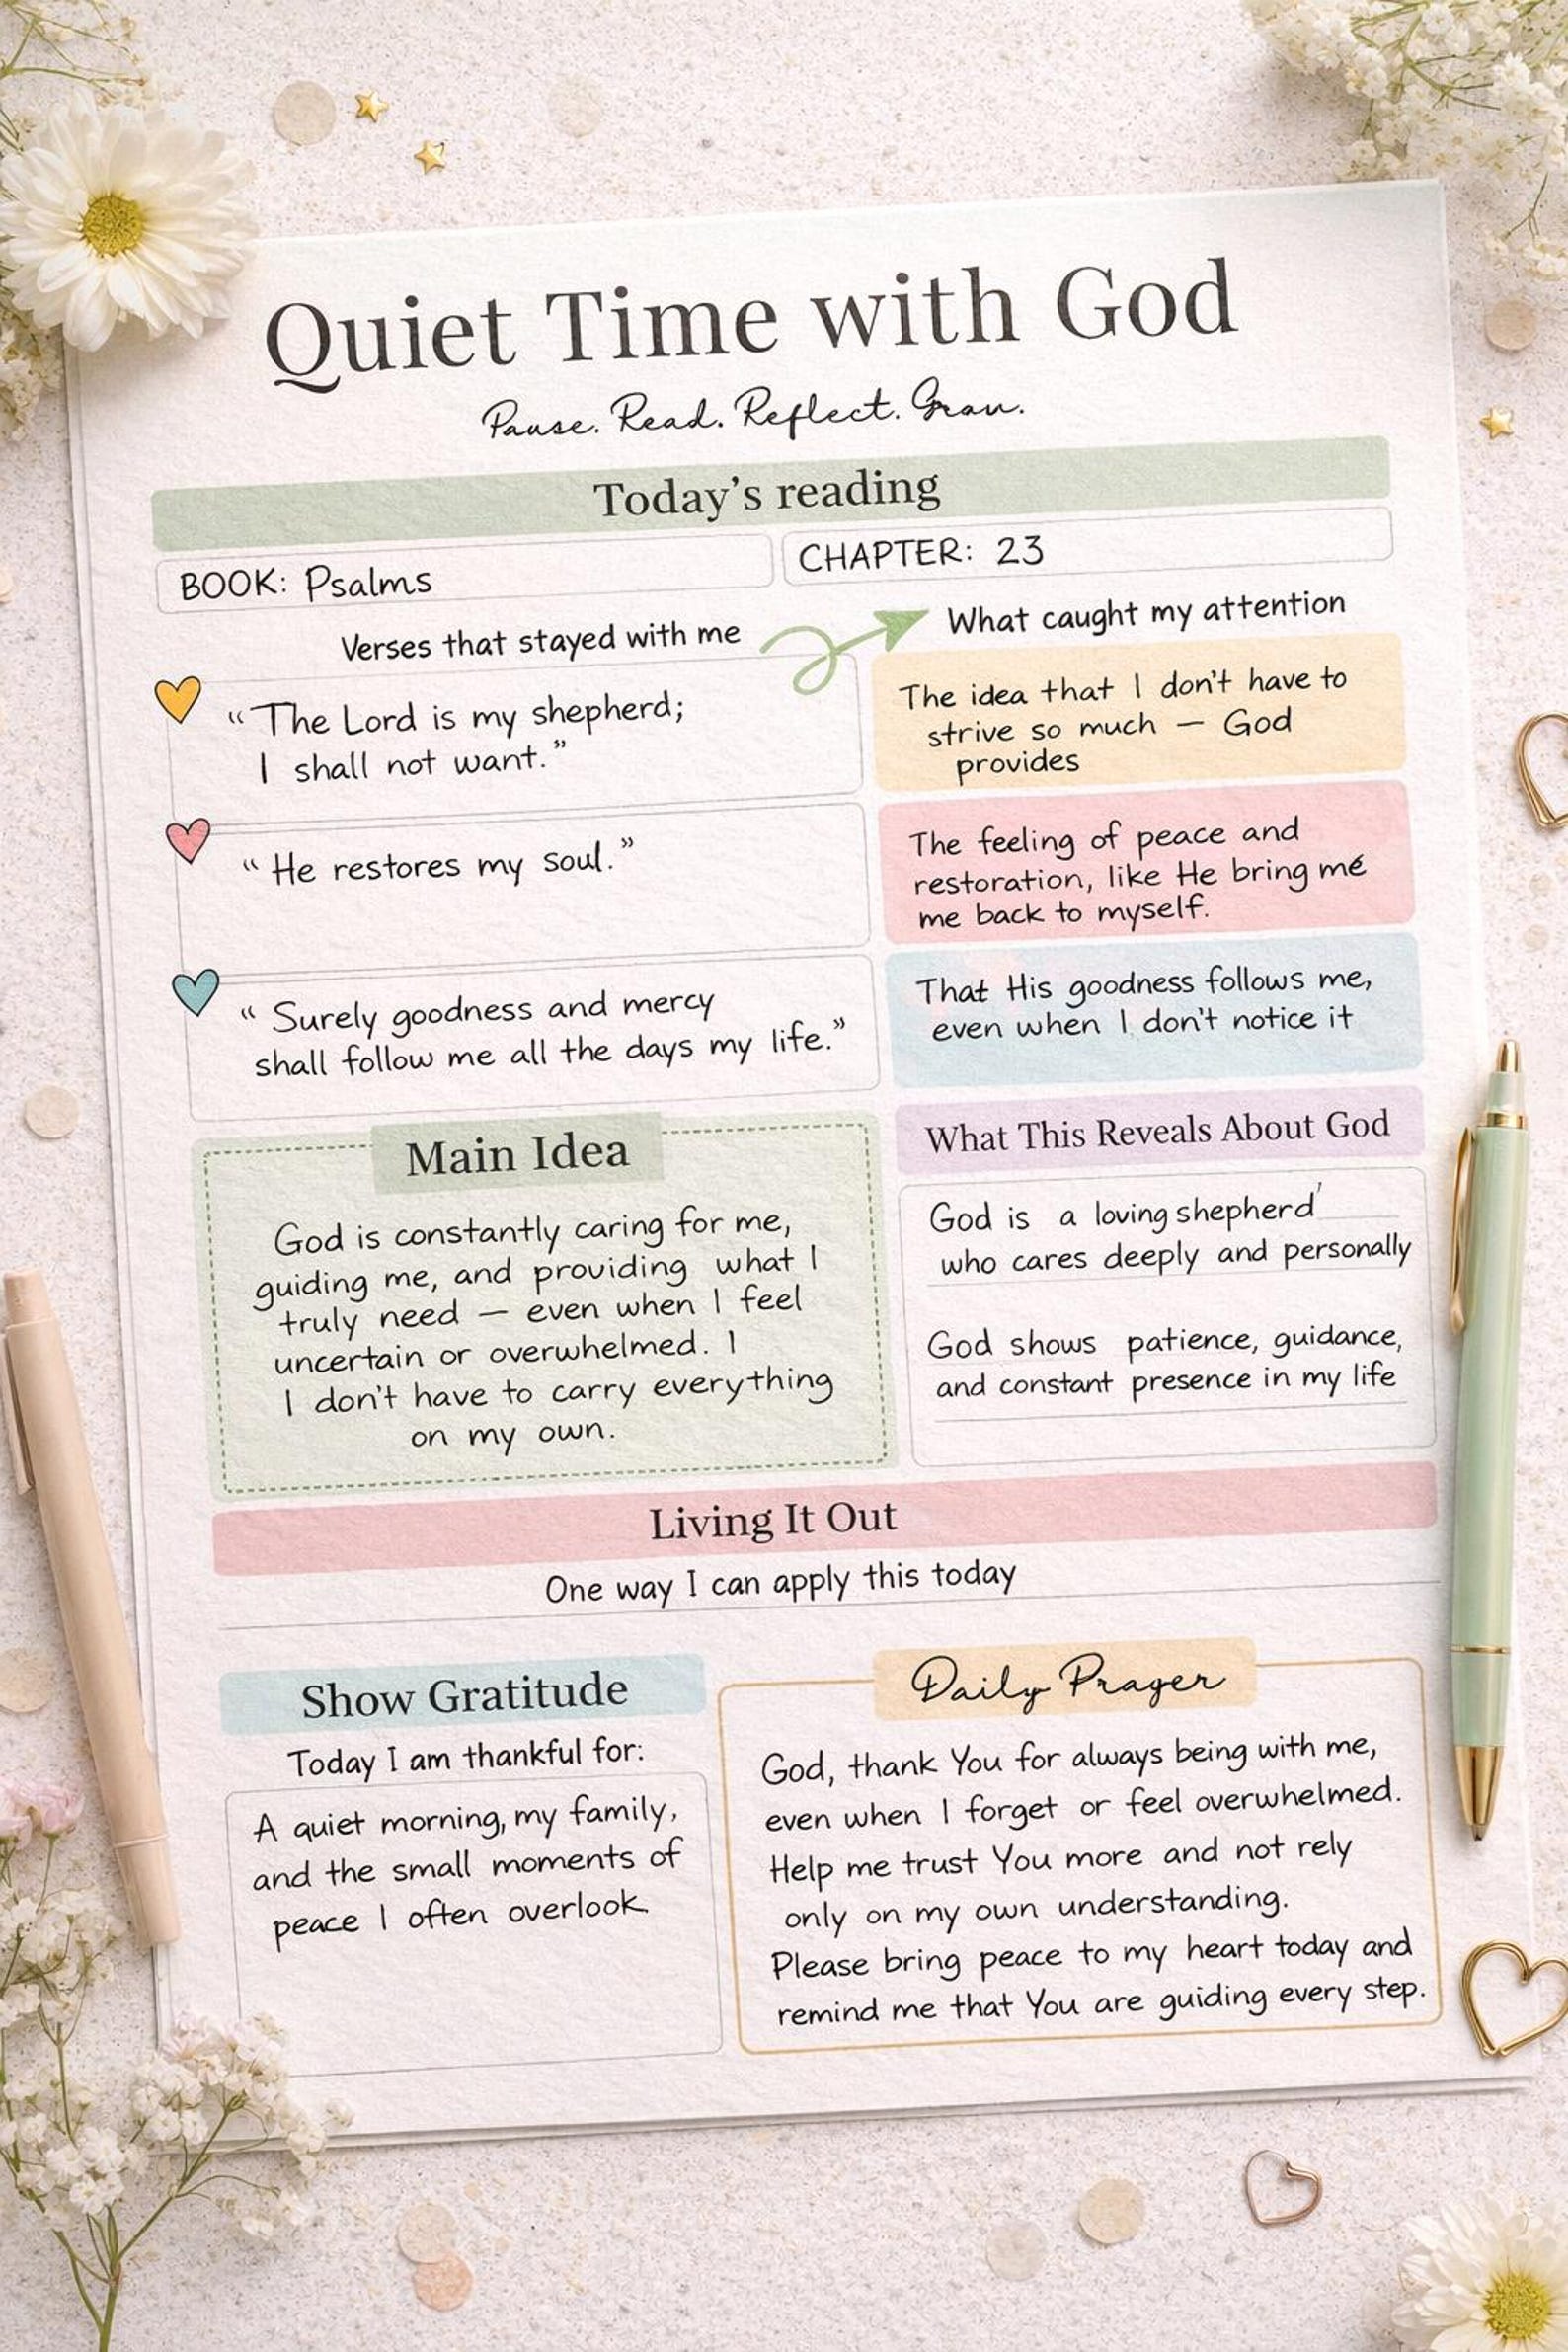 Quiet Time with God
Pause. Read. Reflect. Grow.
Today's reading
BOOK: Psalms
CHAPTER: 23
Verses that stayed with me
What caught my attention
“The Lord is my shepherd;
I shall not want.”
The idea that I don't have to
strive so much — God
provides
“He restores my soul.”
The feeling of peace and
restoration, like He bring me
me back to myself.
“Surely goodness and mercy
shall follow me all the days my life.”
That His goodness follows me,
even when I don't notice it
Main Idea
God is constantly caring for me,
guiding me, and providing what I
truly need — even when I feel
uncertain or overwhelmed. I
I don't have to carry everything
on my own.
What This Reveals About God
God is a loving shepherd
who cares deeply and personally
God shows patience, guidance,
and constant presence in my life
Living It Out
One way I can apply this today
Show Gratitude
Today I am thankful for:
A quiet morning, my family,
and the small moments of
peace I often overlook
Daily Prayer
God, thank You for always being with me,
even when I forget or feel overwhelmed.
Help me trust You more and not rely
only on my own understanding.
Please bring peace to my heart today and
remind me that You are guiding every step.